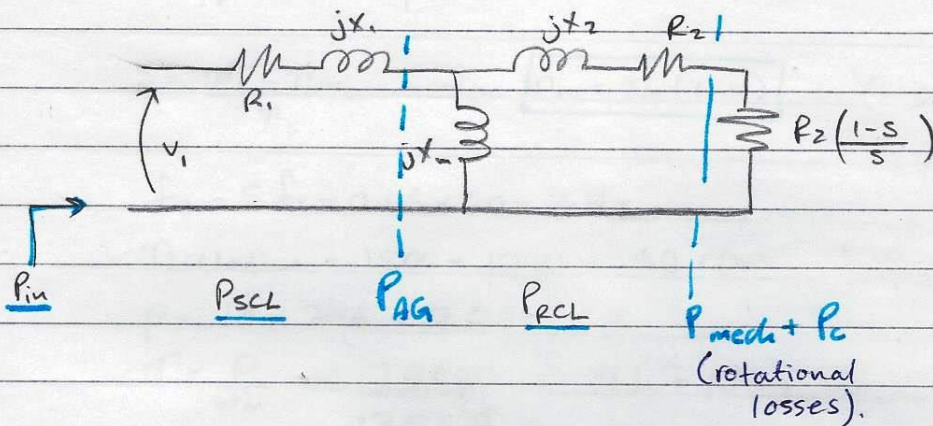 jX₁
jX₂
R₂
R₁
V₁
jXₘ
R₂(1-S/S)
Pin
PSCL
PAG
PRCL
Pmech + Pc
(rotational
losses).